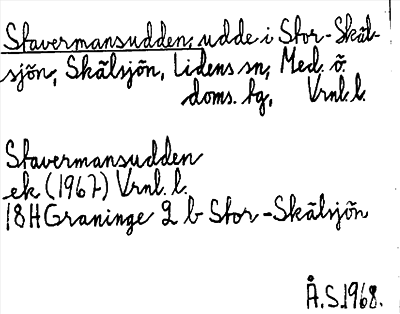 Stavermansudden, udde i Stor-Skäl-
sjön, Skälsjön, Lidens sn, Med. ö.
doms. tg, Vrnl. l.
Stavermansudden
ek (1967) Vrnl. l.
18H Graninge 2 b Stor-Skälsjön
Å.S. 1968.